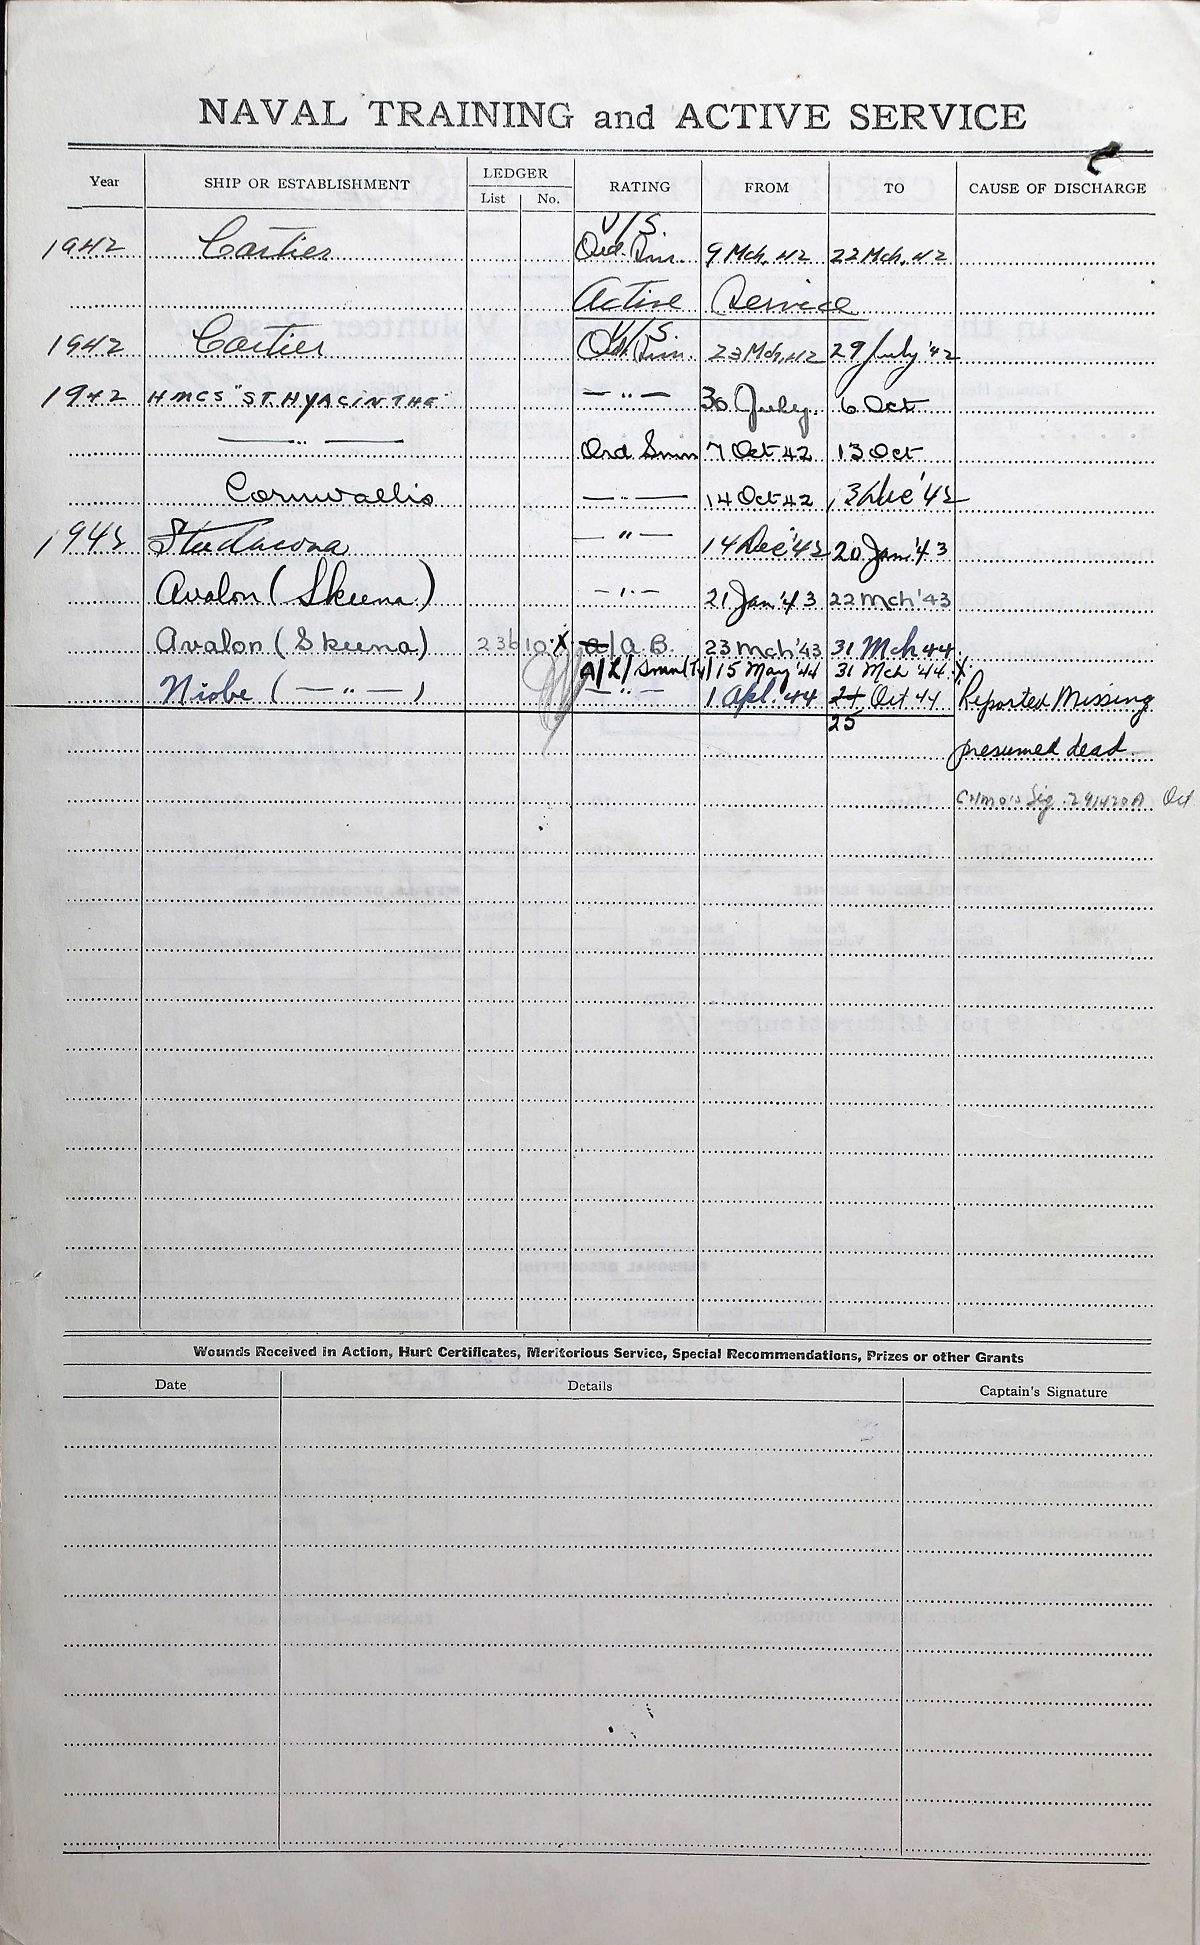 NAVAL TRAINING and ACTIVE SERVICE
Year SHIP OR ESTABLISHMENT LEDGER RATING FROM TO CAUSE OF DISCHARGE
List No.
V/S.
1942 Cartier Ord. Smn. 9 Mch. 42 22 Mch. 42
Active Service
V/S.
1942 Cartier Ord. Smn. 23 Mch. 42 29 July '42
1942 HMCS "ST. HYACINTHE" — " — 30 July 6 Oct
— " — Ord Smn 7 Oct 42 13 Oct
Cornwallis — " — 14 Oct 42 13 Dec '42
1942 Stadacona — " — 14 Dec '42 20 Jan '43
Avalon (Skeena) — " — 21 Jan '43 22 Mch '43
Avalon (Skeena) 236 10 X a/A.B. 23 Mch '43 31 Mch 44
A/L/Smn(Ty) 15 May '44 31 Mch '44 X
Niobe ( — " — ) — " — 1 Apl. '44 24 Oct 44 Reported Missing
25
presumed dead
Sig. 291420A Oct
Wounds Received in Action, Hurt Certificates, Meritorious Service, Special Recommendations, Prizes or other Grants
Date Details Captain's Signature